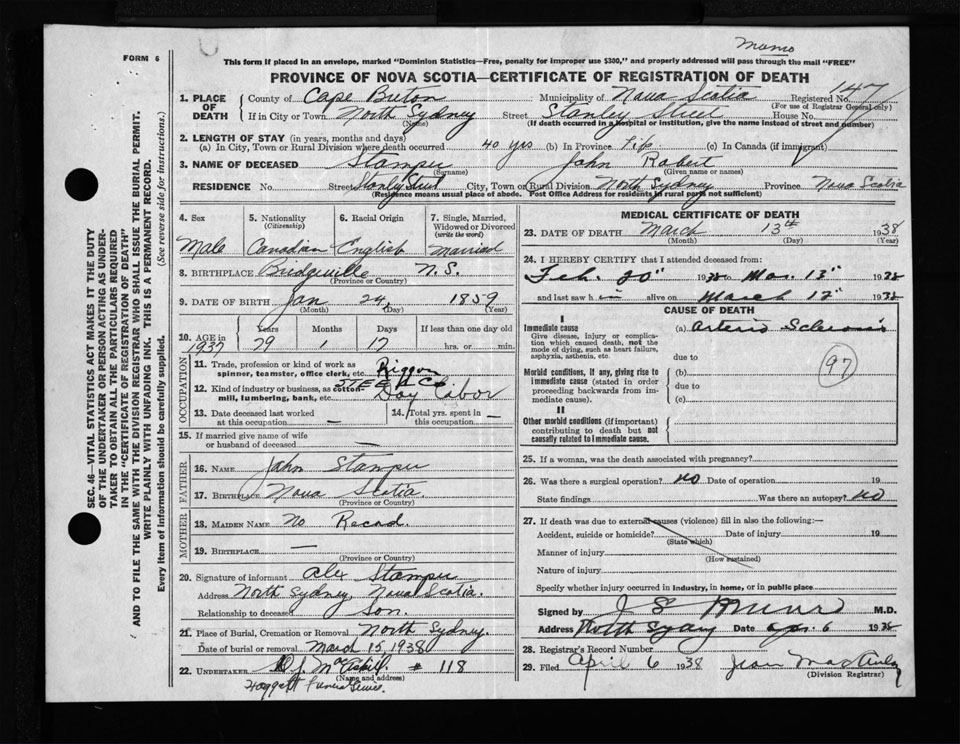 Memo
FORM 6
This form if placed in an envelope, marked "Dominion Statistics—Free, penalty for improper use $300," and properly addressed will pass through the mail "FREE"
PROVINCE OF NOVA SCOTIA—CERTIFICATE OF REGISTRATION OF DEATH
147
1. PLACE OF DEATH County of Cape Breton Municipality of Nova Scotia Registered No.
(For use of Registrar General only)
If in City or Town North Sydney Street Stanley Street House No.
(Name) (If death occurred in a hospital or institution, give the name instead of street and number)
2. LENGTH OF STAY (in years, months and days)
(a) In City, Town or Rural Division where death occurred 40 yrs (b) In Province Life (c) In Canada (if immigrant)
3. NAME OF DECEASED Stamper John Robert
(Surname) (Given name or names)
RESIDENCE No. Street Stanley Street City, Town or Rural Division North Sydney Province Nova Scotia
(Residence means usual place of abode. Post Office Address for residents in rural parts not sufficient)
4. Sex 5. Nationality (Citizenship) 6. Racial Origin 7. Single, Married, Widowed or Divorced (write the word)
Male Canadian English Married
8. BIRTHPLACE Bridgeville N.S.
(Province or Country)
9. DATE OF BIRTH Jan 24, 1859
(Month) (Day) (Year)
10. AGE in Years Months Days If less than one day old
1937 79 1 17 hrs. or min.
OCCUPATION
11. Trade, profession or kind of work as spinner, teamster, office clerk, etc. Rigger
12. Kind of industry or business, as cotton-mill, lumbering, bank, etc. STEEL Co Day Labor
13. Date deceased last worked at this occupation — 14. Total yrs. spent in this occupation —
15. If married give name of wife or husband of deceased —
FATHER
16. NAME John Stamper
17. BIRTHPLACE Nova Scotia.
(Province or Country)
MOTHER
18. MAIDEN NAME No Record.
19. BIRTHPLACE —
(Province or Country)
20. Signature of informant Alex Stamper
Address North Sydney, Nova Scotia.
Relationship to deceased Son.
21. Place of Burial, Cremation or Removal North Sydney.
Date of burial or removal March 15, 1938
22. UNDERTAKER # 118
(Name and address)
Funeral Service.
MEDICAL CERTIFICATE OF DEATH
23. DATE OF DEATH March 13th 1938
(Month) (Day) (Year)
24. I HEREBY CERTIFY that I attended deceased from:
Feb. 20" 1938 to Mar. 13" 1938
and last saw h alive on March 12" 1938
CAUSE OF DEATH
I
Immediate cause (a) Arterio Sclerosis
Give disease, injury or complication which caused death, not the mode of dying, such as heart failure, asphyxia, asthenia, etc.
due to
97
Morbid conditions, if any, giving rise to immediate cause (stated in order proceeding backwards from immediate cause). (b)
due to
(c)
II
Other morbid conditions (if important) contributing to death but not causally related to immediate cause.
25. If a woman, was the death associated with pregnancy?
26. Was there a surgical operation? No Date of operation 19
State findings Was there an autopsy? No
27. If death was due to external causes (violence) fill in also the following:—
Accident, suicide or homicide? Date of injury 19
(State which)
Manner of injury
(How sustained)
Nature of injury
Specify whether injury occurred in industry, in home, or in public place
Signed by M.D.
Address North Sydney Date Apr. 6 1938
28. Registrar's Record Number
29. Filed April 6 1938 Jean
(Division Registrar)
SEC. 46—VITAL STATISTICS ACT MAKES IT THE DUTY
OF THE UNDERTAKER OR PERSON ACTING AS UNDER-
TAKER TO OBTAIN ALL THE PARTICULARS REQUIRED
IN THE "CERTIFICATE OF REGISTRATION OF DEATH"
AND TO FILE THE SAME WITH THE DIVISION REGISTRAR WHO SHALL ISSUE THE BURIAL PERMIT.
WRITE PLAINLY WITH UNFADING INK. THIS IS A PERMANENT RECORD.
Every item of information should be carefully supplied. (See reverse side for instructions.)